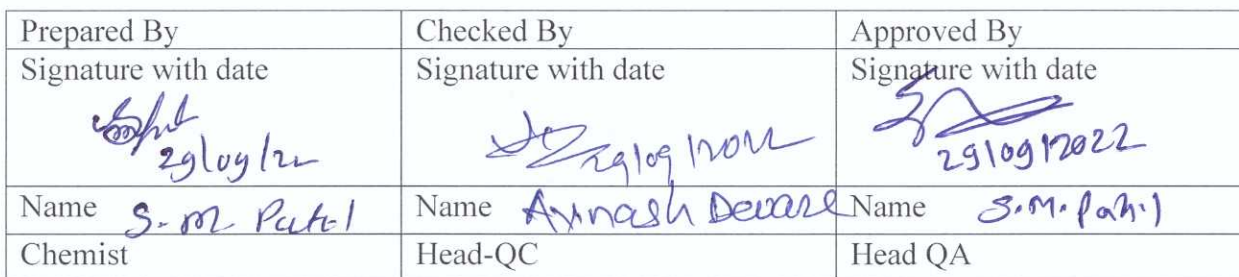 Prepared By Checked By Approved By
Signature with date Signature with date Signature with date
29/09/22 29/09/2022 29/09/2022
Name S. M Patel Name Avinash Deware Name S.M. Patil
Chemist Head-QC Head QA